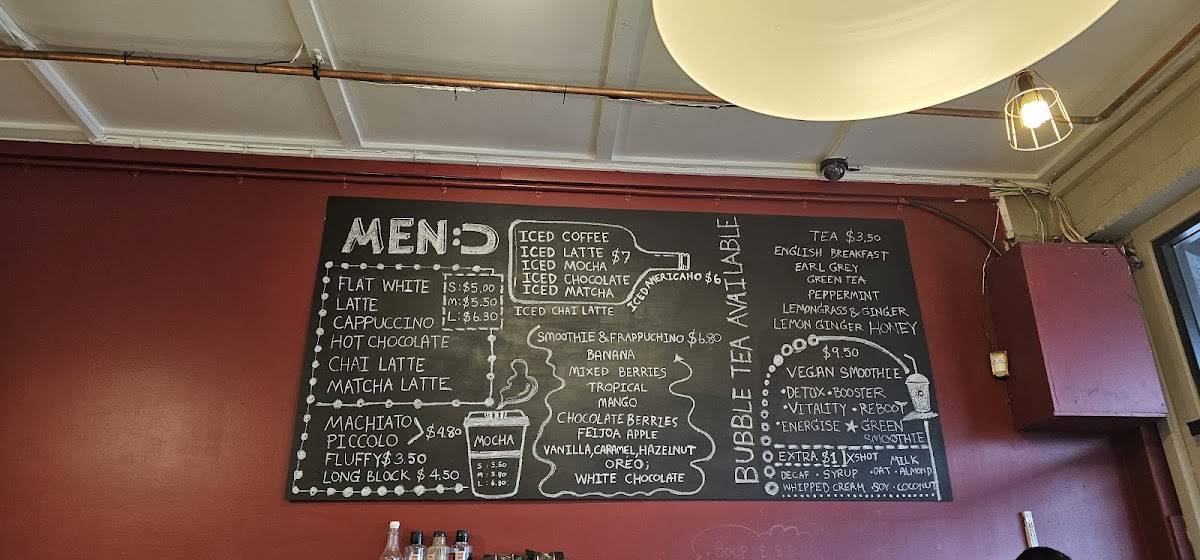 MENU
FLAT WHITE
LATTE
CAPPUCCINO
HOT CHOCOLATE
CHAI LATTE
MATCHA LATTE
S:$5.00
M:$5.50
L:$6.30
MACHIATO
PICCOLO
$4.80
FLUFFY $3.50
LONG BLOCK $4.50
MOCHA
S: 5.50
M: 5.80
L: 6.80
ICED COFFEE
ICED LATTE $7
ICED MOCHA
ICED CHOCOLATE
ICED MATCHA
ICED AMERICANO $6
ICED CHAI LATTE
SMOOTHIE & FRAPPUCHINO $6.80
BANANA
MIXED BERRIES
TROPICAL
MANGO
CHOCOLATE BERRIES
FEIJOA APPLE
VANILLA, CARAMEL, HAZELNUT
OREO;
WHITE CHOCOLATE
BUBBLE TEA AVAILABLE
TEA $3.50
ENGLISH BREAKFAST
EARL GREY
GREEN TEA
PEPPERMINT
LEMONGRASS & GINGER
LEMON GINGER HONEY
$9.50
VEGAN SMOOTHIE
•DETOX •BOOSTER
•VITALITY •REBOOT
•ENERGISE ★ GREEN
SMOOTHIE
EXTRA $1 XSHOT MILK
DECAF • SYRUP •OAT •ALMOND
WHIPPED CREAM •SOY •COCONUT